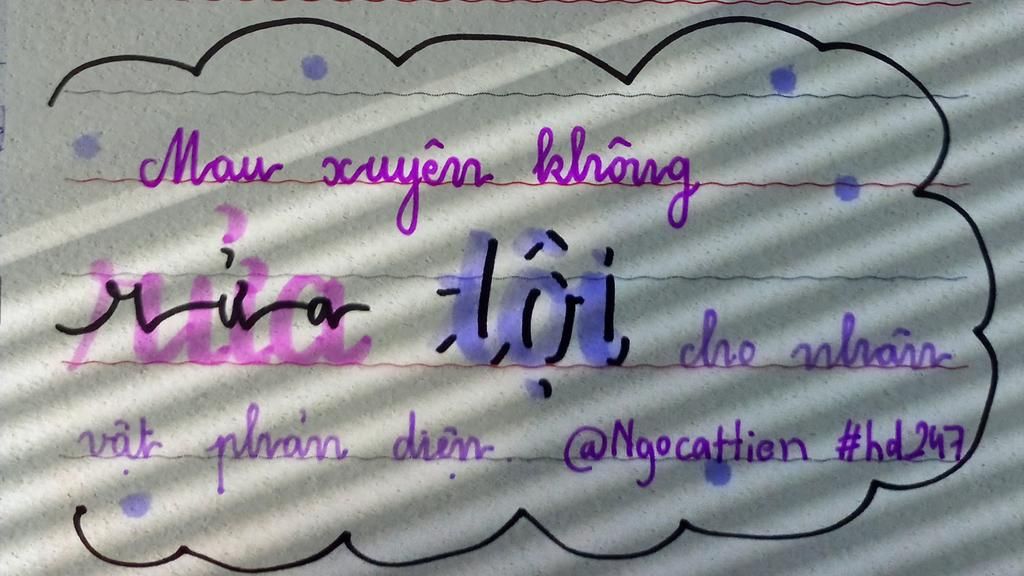 Mau xuyên không
rửa tội cho nhân
vật phản diện. @Ngocattien #hd247